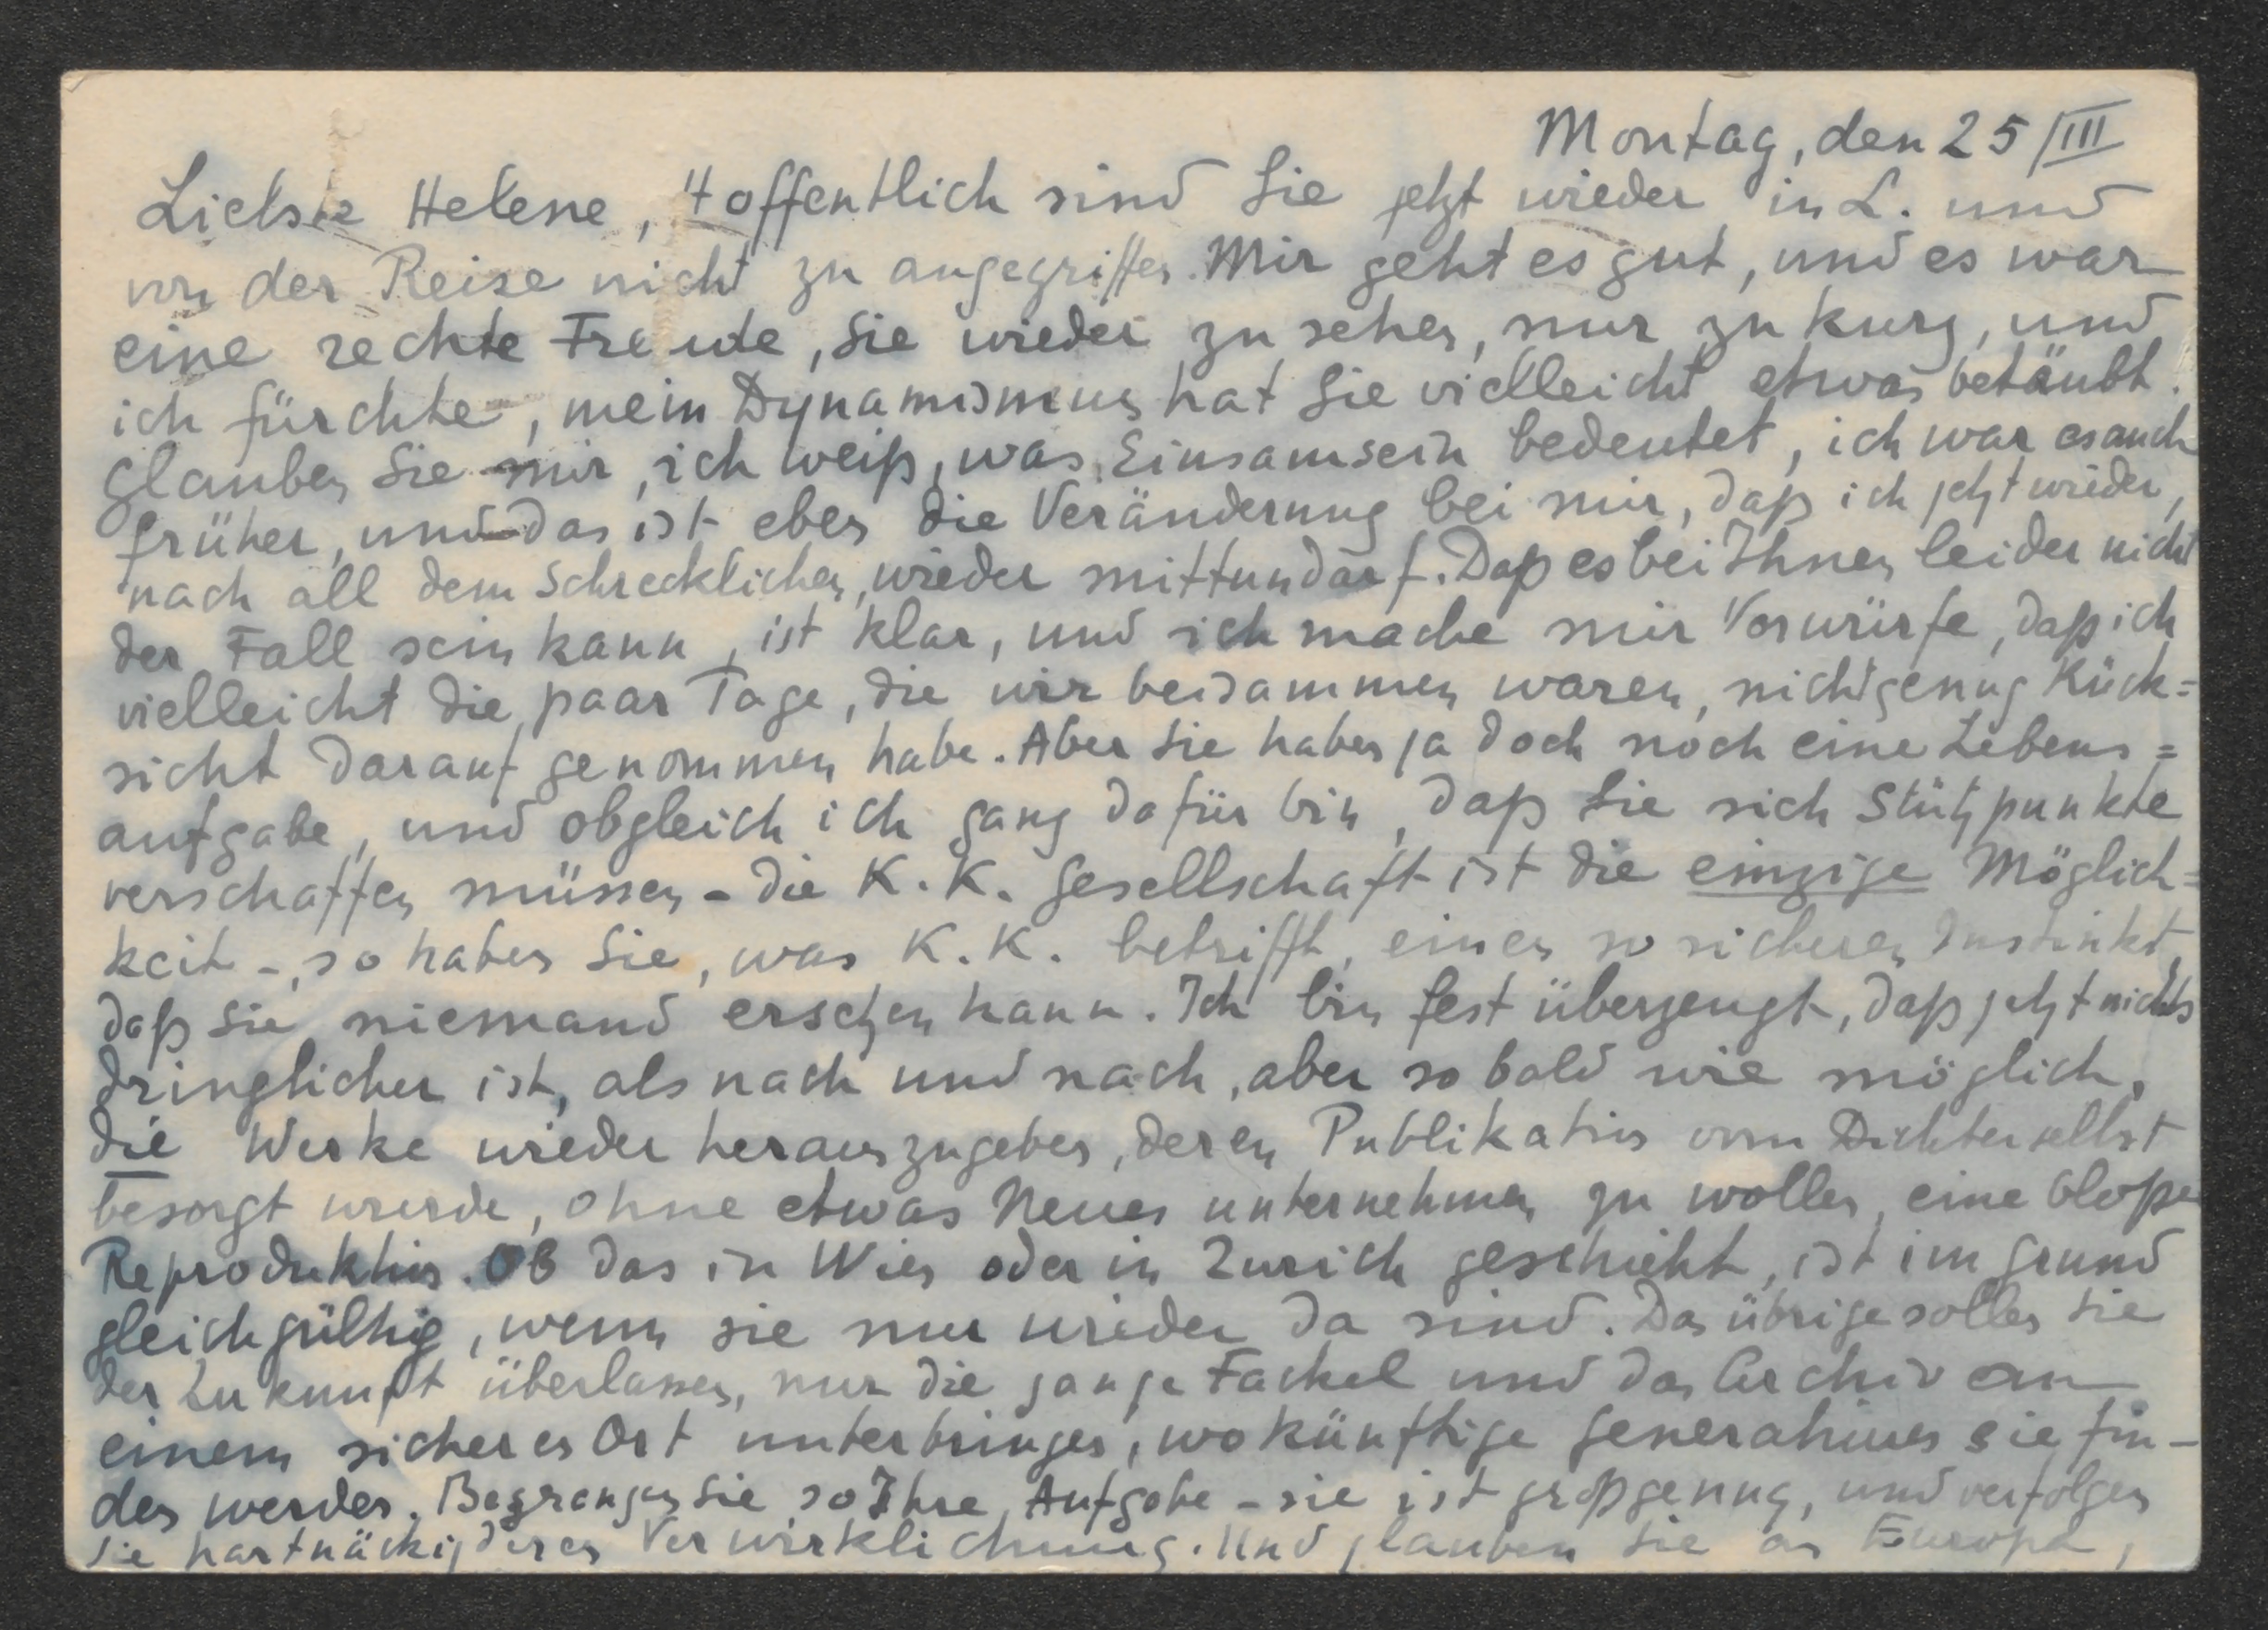 Montag, den 25/III
Liebste Helene, Hoffentlich sind Sie jetzt wieder in L. und
von der Reise nicht zu angegriffen. Mir geht es gut, und es war
eine rechte Freude, Sie wieder zu sehen, nur zu kurz, und
ich fürchte, mein Dynamismus hat Sie vielleicht etwas betäubt.
Glauben Sie mir, ich weiß, was Einsamsein bedeutet, ich war es auch
früher, und das ist eben die Veränderung bei mir, daß ich jetzt wieder,
nach all dem Schrecklichen, wieder mittun darf. Daß es bei Ihnen leider nicht
der Fall sein kann, ist klar, und ich mache mir Vorwürfe, daß ich
vielleicht die paar Tage, die wir beisammen waren, nicht genug Rück=
sicht darauf genommen habe. Aber Sie haben ja doch noch eine Lebens=
aufgabe, und obgleich ich ganz dafür bin, daß Sie sich Stützpunkte
verschaffen müssen - die K. K. Gesellschaft ist die einzige Möglich=
keit -, so haben Sie, was K. K. betrifft, einen so sicheren Instinkt,
daß Sie niemand ersetzen kann. Ich bin fest überzeugt, daß jetzt nichts
dringlicher ist, als nach und nach, aber so bald wie möglich,
die Werke wieder herauszugeben, deren Publikation vom Dichter selbst
besorgt wurde, ohne etwas Neues unternehmen zu wollen, eine bloße
Reproduktion. Ob das in Wien oder in Zürich geschieht, ist im Grund
gleichgültig, wenn sie nur wieder da sind. Das übrige sollen Sie
der Zukunft überlassen, nur die ganze Fackel und das Archiv an
einem sicheren Ort unterbringen, wo künftige Generationen sie fin-
den werden. Begrenzen Sie so Ihre Aufgabe - sie ist groß genug, und verfolgen
Sie hartnäckig deren Verwirklichung. Und glauben Sie an Europa,